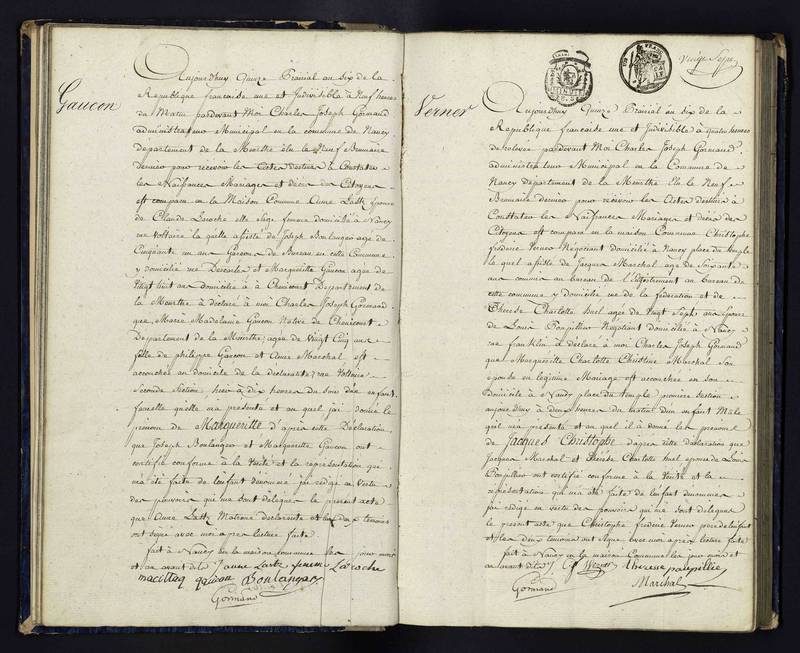 Gaucon
Aujourdhuy Quinze Prairial an six de la
Republique francaise une et Indivisible à Neuf heures
du Matin pardevant Moi Charles Joseph Gormand
administrateur Municipal en la commune de Nancy
Departement de la Meurthe élu le Neuf Brumaire
dernier pour recevoir les Actes destinés à Constater
les Naissances Mariages et décès des Citoyens
est comparu en la Maison Commune Anne Latk épouse
de Claude Laroche elle Sage femme domicilié à Nancy
rue Voltaire la quelle assisté de Joseph Boulanger agé de
Cinquante un an Garcon de Bureau en cette Commune
y domicilié rue Descartes et Margueritte Gaucon agée de
Vingt huit ans domicilié à Chenicourt Departement de
la Meurthe à déclaré à moi Charles Joseph Gormand
que Marie Madelaine Gaucon Native de Chenicourt
Departement de la Meurthe, agée de Vingt Cinq ans
fille de philippe Gaucon et Anne Marchal est
accouchée au domicile de la déclarante rue Voltaire
Seconde Section, hier à dix heures du Soir d'un enfant
femelle qu'elle ma présenté et au quel j'ai donné le
prenom de Margueritte d'après cette Déclaration
que Joseph Boulanger et Margueritte Gaucon ont
certifié conforme à la Vérité et la représentation qui
m'a été faite de l'enfant dénommé j'ai redigé en Vertu
des pouvoirs qui me sont délégués le présent acte
que Anne Latk Matrone déclarante et les deux temoins
ont signé avec moi après lecture faite
fait à Nancy en la maison commune les jour mois
et an avant dits anne Lartz femme Laroche
gaucon Boulanger
Gormand
Verner
Aujourdhuy Quinze Prairial an six de la
Republique francaise une et Indivisible à quatre heures
de relevée pardevant Moi Charles Joseph Gormand
administrateur Municipal en la Commune de
Nancy Departement de la Meurthe Elu le Neuf
Brumaire dernier pour recevoir les Actes destinés à
Constater les Naissances Mariages et décès des
Citoyens est comparu en la maison Commune Christophe
frederic Verner Négociant domicilié à Nancy place du temple
le quel assisté de Jacques Marchal agé de Soixante
ans commis au bureau de l'Enregistrement au bureau de
cette commune y domicilié rue de la féderation et de
Therese Charlotte huel agée de Vingt Sept ans épouse
de Louis Négotiant domicilié à Nancy
rue franklin à déclaré à moi Charles Joseph Gormand
que Margueritte Charlotte Christine Marchal Son
épouse en légitime Mariage est accouchée en son
Domicile à Nancy place du temple premiere Section
aujourdhuy à deux heures du matin d'un enfant Male
qu'il m'a présenté et au quel il à donné les prenoms
de Jacques Christophe d'après cette déclaration que
Jacques Marchal et Thérèse Charlotte huel épouse de Louis
ont certifié conforme à la Vérité et la
représentation qui m'a été faite de l'enfant dénommé
j'ai redigé en vertu des pouvoirs qui me sont delegués
le présent acte que Christophe frédéric Verner pere de l'enfant
et les deux temoins ont signé avec moi après lecture faite
fait à Nancy en la maison Commune les jour mois et
an avant dits
Gormand
Marchal